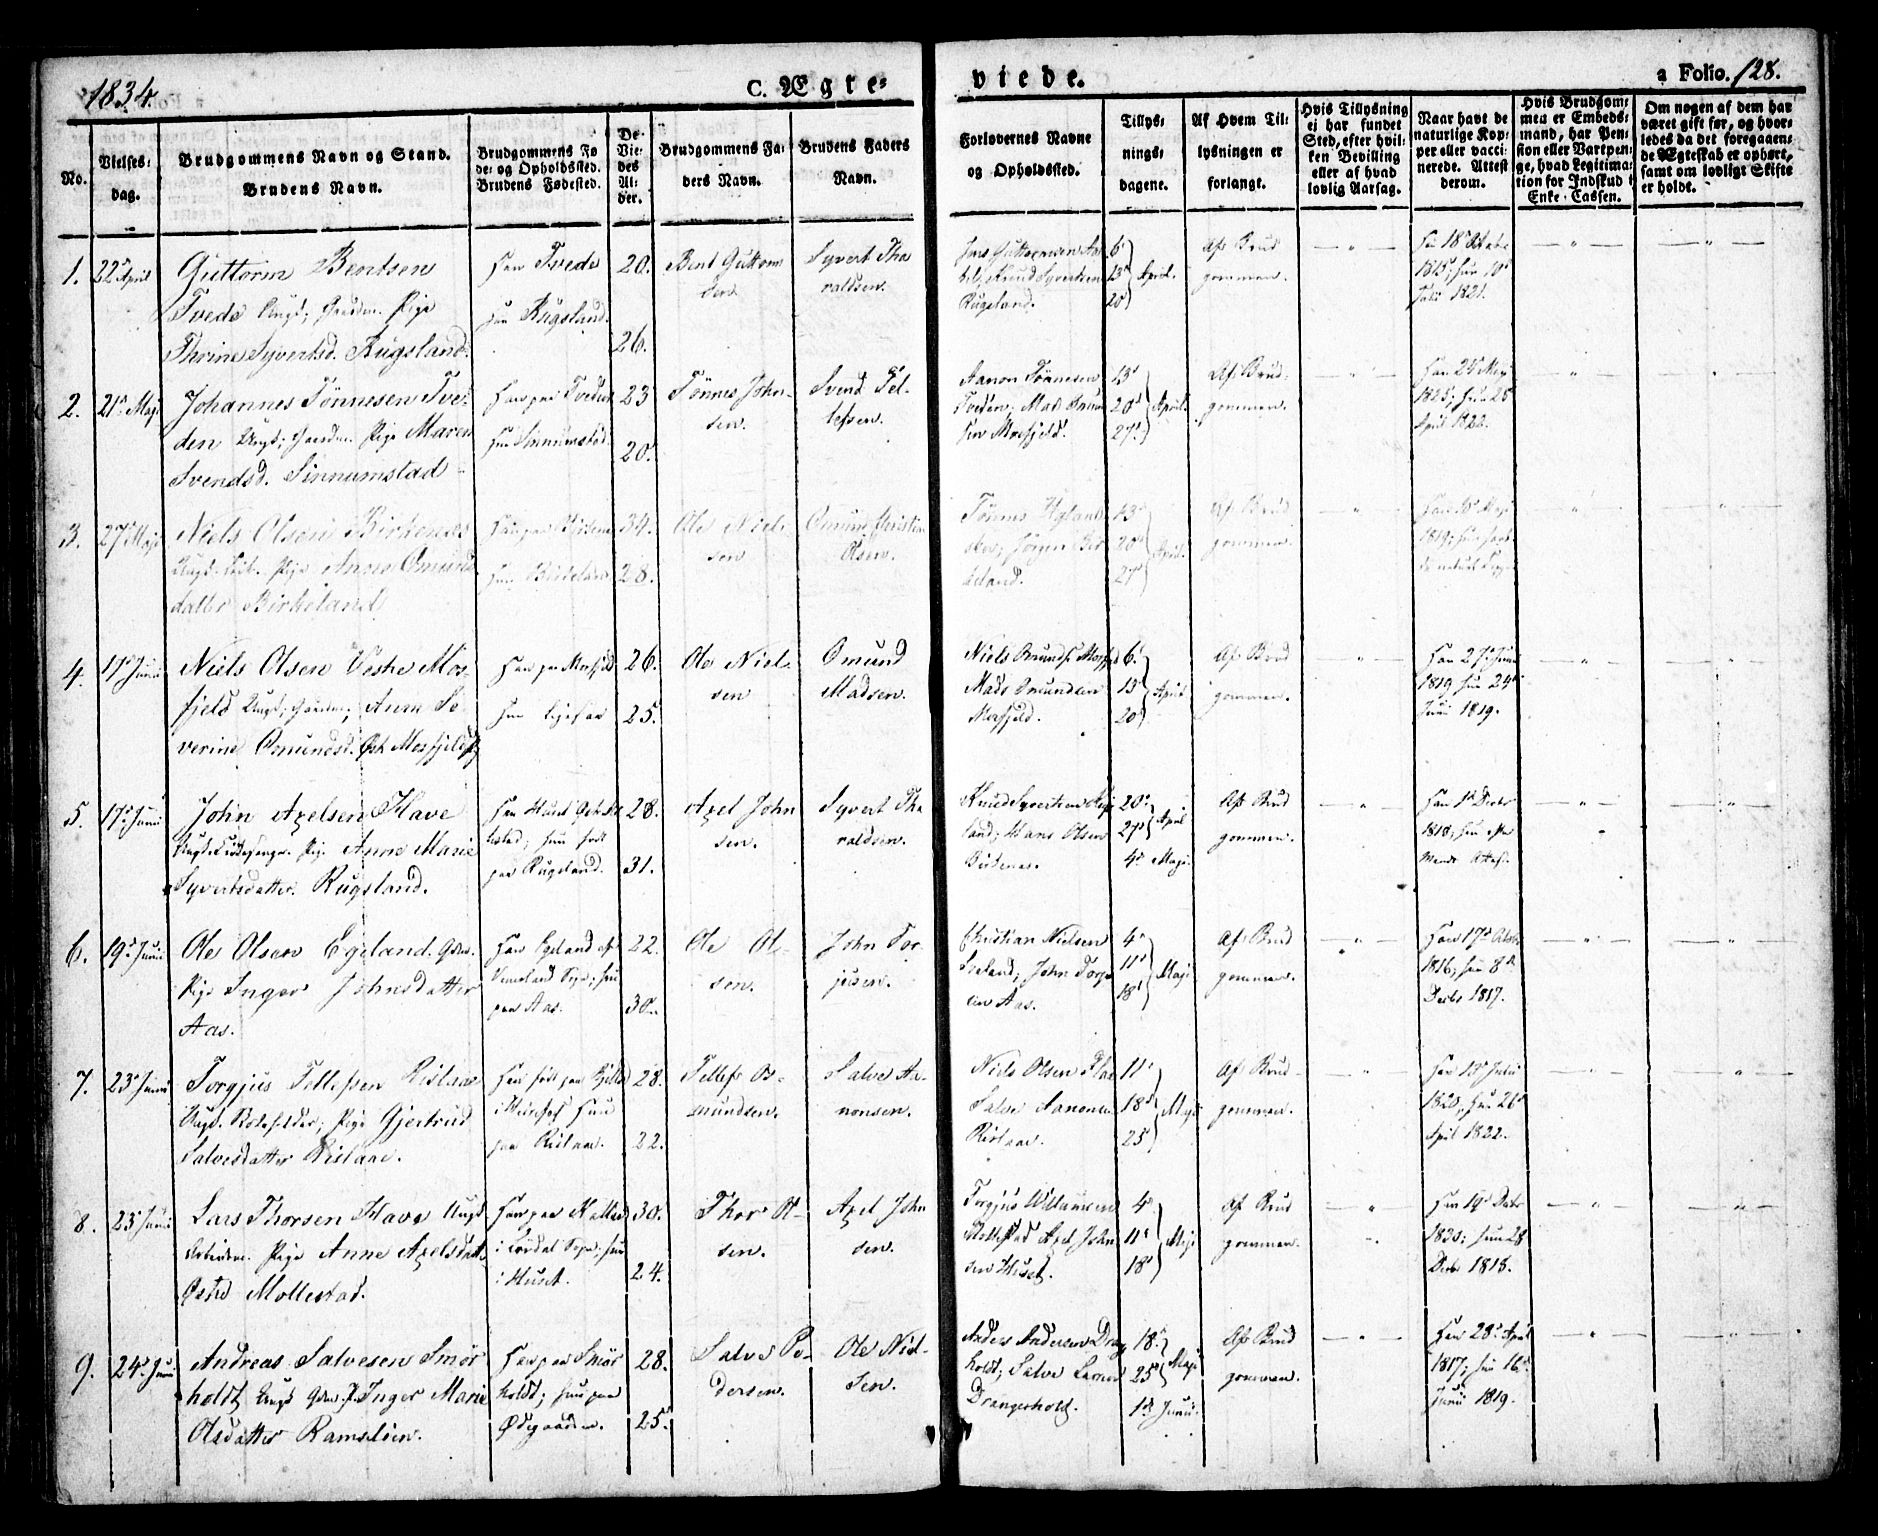 1834.
C. Ægte=
viede.
a Folio. 128.
No.
Vielses=
dag.
Brudgommens Navn og Stand.
Brudens Navn.
Brudgommens Fø
de= og Opholdssted.
Brudens Fødested.
De
Vie=
des
Al=
der.
Brudgommens Fa=
ders Navn.
Brudens Faders
Navn.
Forlovernes Navne
og Opholdssted.
Tillys=
nings=
dagene.
Af Hvem Til=
lysningen er
forlangt.
Hvis Tillysning
ei har fundet
Sted, efter hvil=
ken Bevilling
eller af hvad
lovlig Aarsag.
Naar havt de
naturlige Kop=
per eller vacci=
nerede. Attest
derom.
Hvis Brudgom=
men er Embeds=
mand, har Pen=
sion eller Vartpen=
ge, hvad Legitima=
tion for Indskud i
Enke=Cassen.
Om nogen af dem har
været gift før, og hvor=
ledes da det foregaaen=
de Ægteskab er ophørt,
samt om lovligt Skifte
er holdt.
1. 22 April
Guttorm Bentsen
Tvede Ungk; Pige
Thrine Syvertsd. Rugsland.
Han Tvede
hun Rugsland.
20.
26.
Bent Guttorm
sen
Syvert Tha
raldsen.
Jens Guttormsen
Knud Syvertsen
Rugsland.
6
13
20
April.
Af Brud
gommen.
1821.
2. 21 Maji
Johannes Tönnesen Tve=
den Ungk; Pige Maren
Svendsd. Sinnumstad
Han paa Tveden
hun Sinnumstad.
23
20.
Tönnes John=
sen.
Svend Tel=
lefsen.
Aanon Tönnesen
Tveden; Mads
Mosfjeld.
13
20
27
April.
Af Brud=
gommen.
Han 25 Maj
1825; hun 28
April 1822.
3. 27 Maji
Niels Olsen Birkenes
Ungk. Pige Anne Omunds
datter Birkeland
34.
28.
Ole Niel=
sen
Omund Christian
Olsen.
Tönnes
Jörgen Bir
keland.
13
20
27
April.
Af Brud
gommen.
1819;
4. 17 Junii
Niels Olsen Vestre Mos=
fjeld Ungk; Anne Se
verine Omundsd. Øst Mosfjeld
Han paa Mosfjeld
hun ligesaa
26.
25.
Ole Niel=
sen
Omund
Madsen.
Niels Omunds Mosfjeld
Mads Omundsen
Mosfjeld.
6.
13
20
April
Af Brud
gommen.
Han 27 Junii
1819 hun 24
Junii 1819.
5. 17 Junii
John Axelsen Have
Ungk. Pige Anne Marie
Syvertsdatter Rugsland.
hun født
paa Rugsland.
28.
31.
Axel John
sen.
Syvert Tha
raldsen.
Knud Syvertsen Rugs
land; Hans Olsen
Birkenes.
20
27
April
4 Maji.
Af Brud
gommen.
1810; hun efter
6. 19 Junii
Ole Olsen Egeland.
Pige Inger Johnsdatter
Aas.
Han Egeland af
Venneslad Sogn; hun
paa Aas.
22.
30.
Ole Ol=
sen.
John Tor=
jusen.
Christian Nielsen
John Torjus
sen Aas.
4
11
18
Maji
Af Brud
gommen.
Han 17
1816; hun 8
Decbr 1817.
7. 23 Junii
Torgjus Tellefsen Rislaae
Ungk. Pige Gjertrud
Salvesdatter Rislaae.
Han født paa
hun
paa Rislaae.
28.
22.
Tellef Os=
mundsen.
Salve Aa=
nonsen.
Niels Olsen
Salve Aanonsen
Rislaae.
11
18
25
Maji
Af Brud
gommen.
Han 15 Julii
1820, hun 26
April 1822.
8. 23 Junii
Lars Thorsen Have Ungk
Pige Anne Axelsdatter
Østre Mollestad.
Han paa
hun
i Huset.
30.
24.
Thor Ol=
sen.
Axel John
sen.
Torgjus Villumsen
Mollestad Axel John
sen Huset.
4
11
18
Maji
Af Brud
gommen.
Han 19 Decbr
1820; hun 28
Decbr 1815.
9. 24 Junii
Andreas Salvesen Smör
holdt Ungk P. Inger Marie
Olsdatter Ramslien.
Han paa Smör
holdt; hun paa
Ødegaarden.
28.
25.
Salve Pe=
dersen.
Ole Niel=
sen.
Anders Andersen Drang
holdt; Salve Larsen
Drangsholdt.
18
25
Maji
1 Junii.
Af Brud
gommen.
Han 28 April
1817; hun 16
Junii 1819.